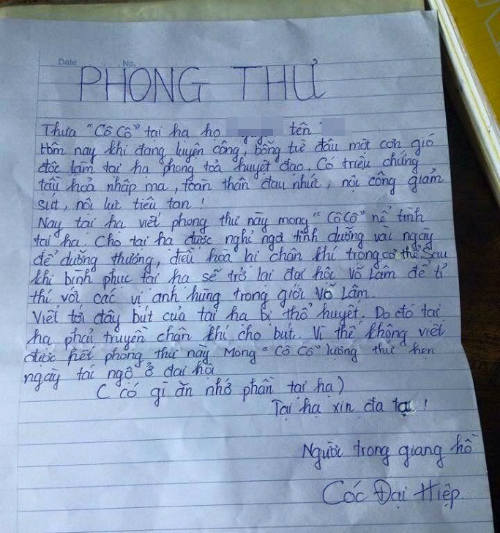 Date No.
PHONG THƯ
Thưa "Cô Cô" tại hạ họ tên
Hôm nay khi đang luyện công, bỗng từ đâu một cơn gió
độc làm tại hạ phong toả huyệt đạo. Có triệu chứng
tẩu hoả nhập ma, toàn thân đau nhức, nội công giảm
sút, nội lực tiêu tan!
Nay tại hạ viết phong thư này mong "Cô Cô" nể tình
tại hạ. Cho tại hạ được nghỉ ngơi tịnh dưỡng vài ngày
để dưỡng thương, điều hoà lại chân khí trong cơ thể. Sau
khi bình phục tại hạ sẽ trở lại đại hội Võ Lâm để tỉ
thí với các vị anh hùng trong giới Võ Lâm.
Viết tới đây bút của tại hạ bị thổ huyết. Do đó tại
hạ phải truyền chân khí cho bút. Vì thế không viết
được hết phong thư này Mong "Cô Cô" lượng thứ hẹn
ngày tái ngộ ở đại hội
( có gì ăn nhớ phần tại hạ)
Tại hạ xin đa tạ!
Người trong giang hồ
Cóc Đại Hiệp.